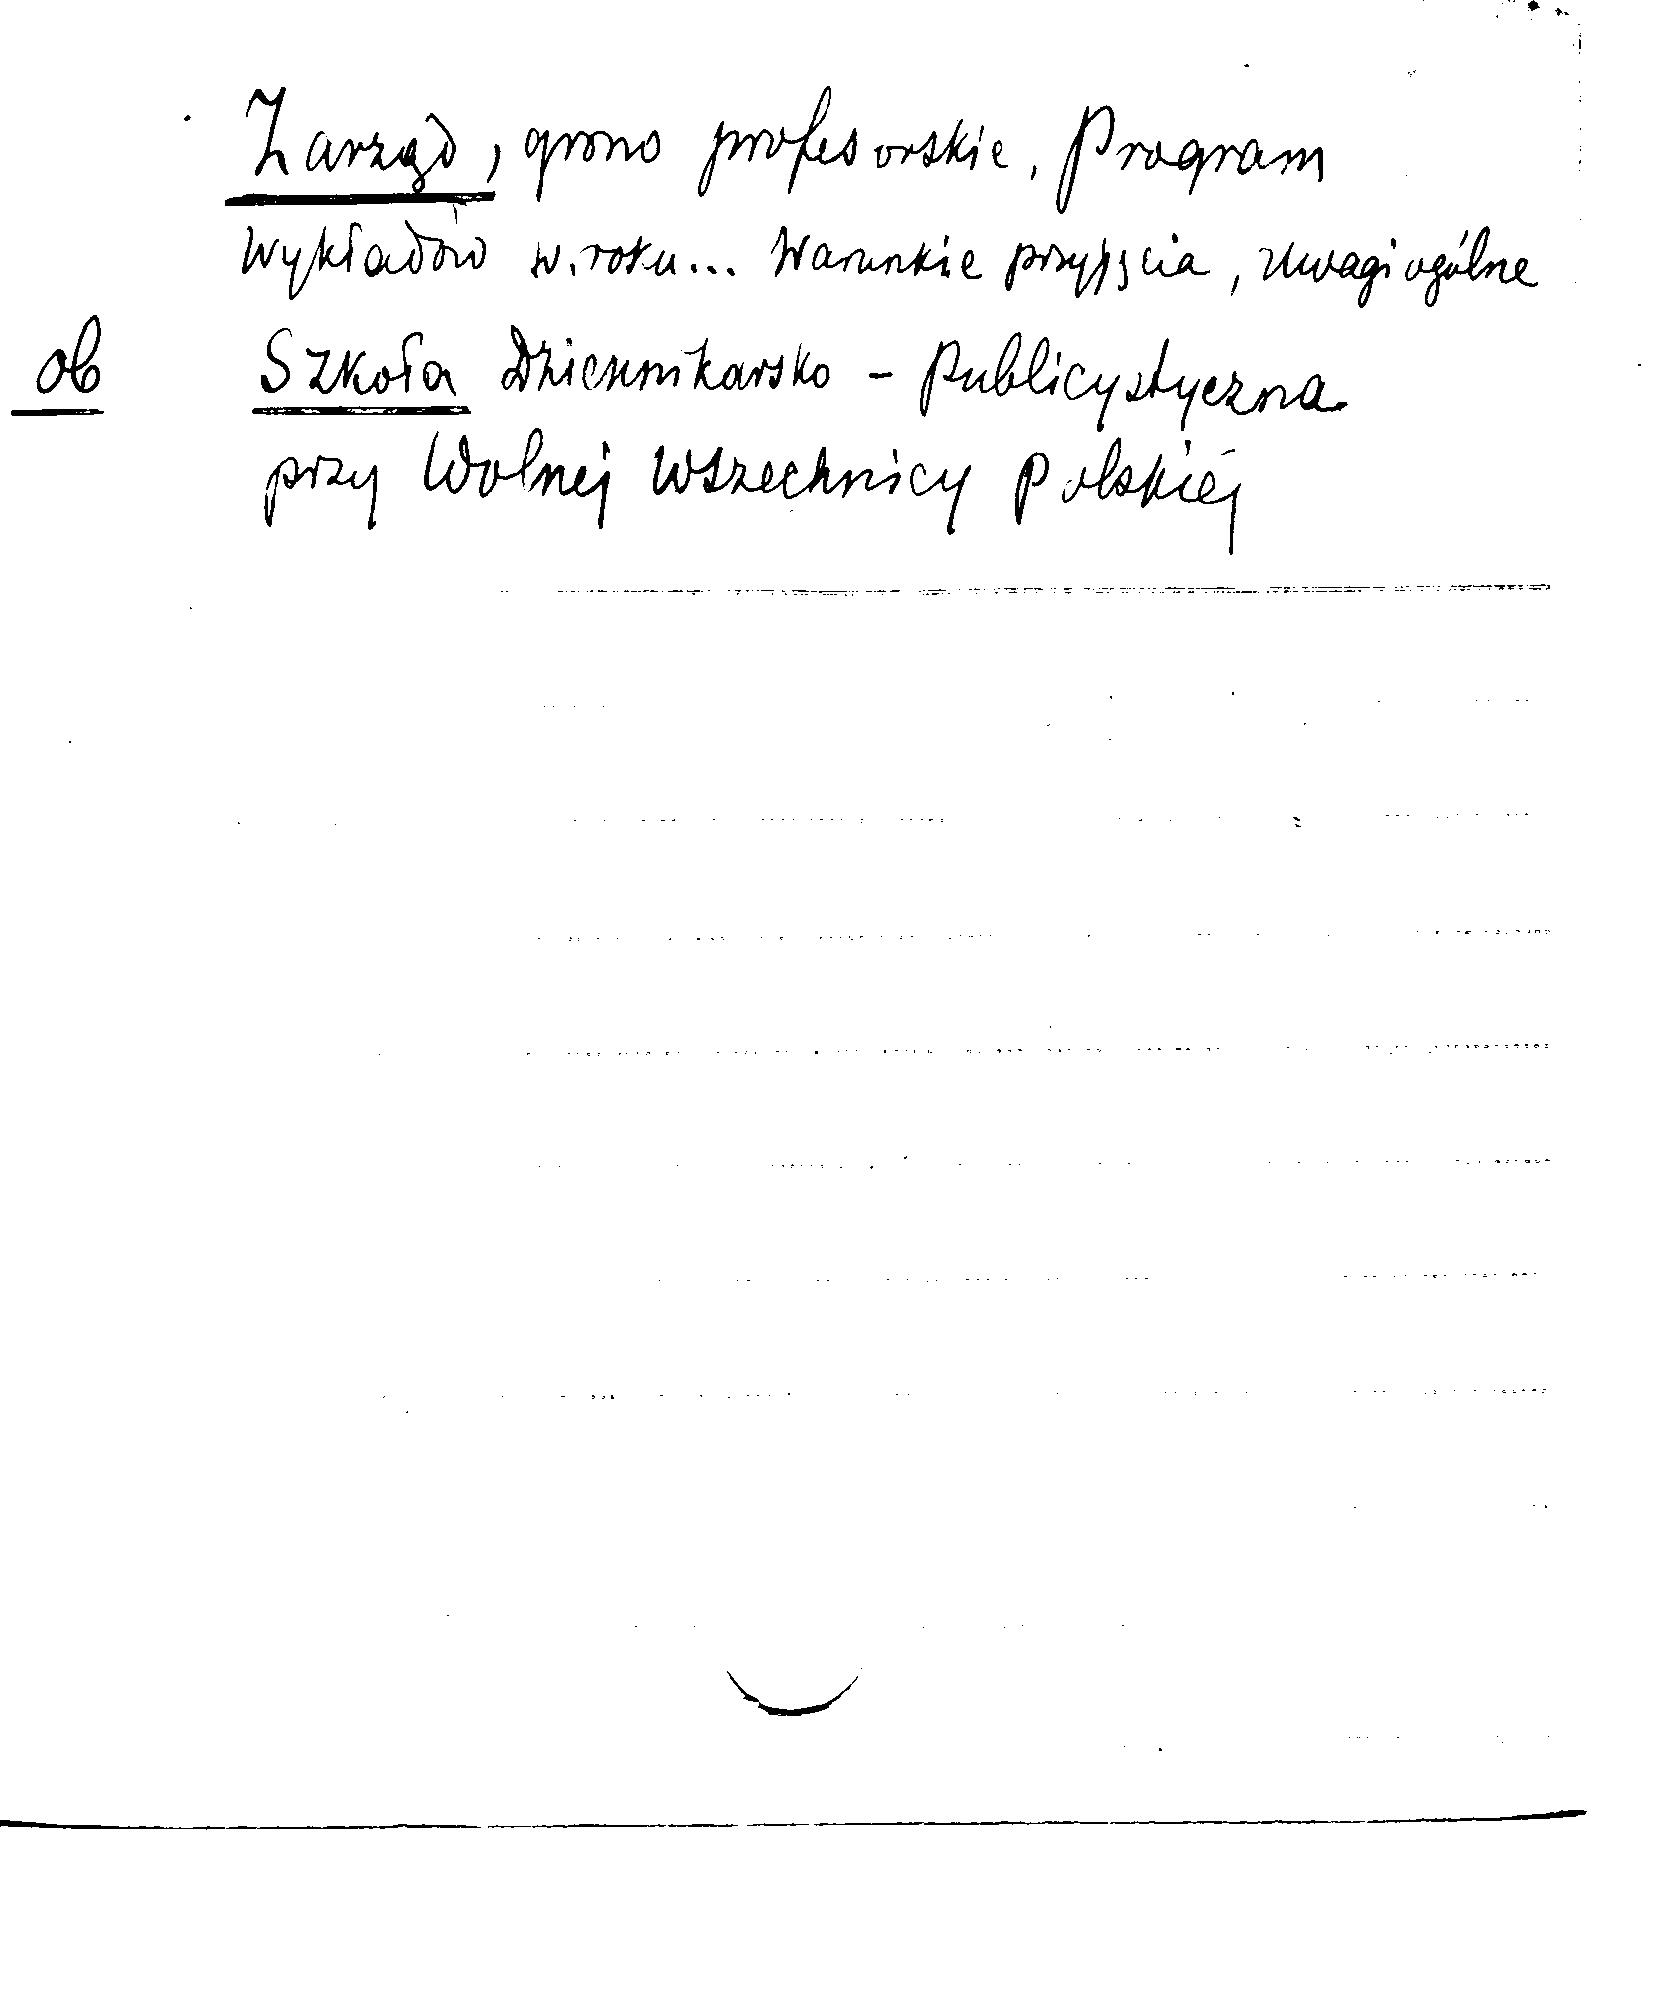 Zarząd, grono profesorskie, Program
wykładów w. roku... Warunkie przyjęcia, Uwagi ogólne
ob Szkoła Dziennikarsko - Publicystyczna
przy Wolnej Wszechnicy Polskiej